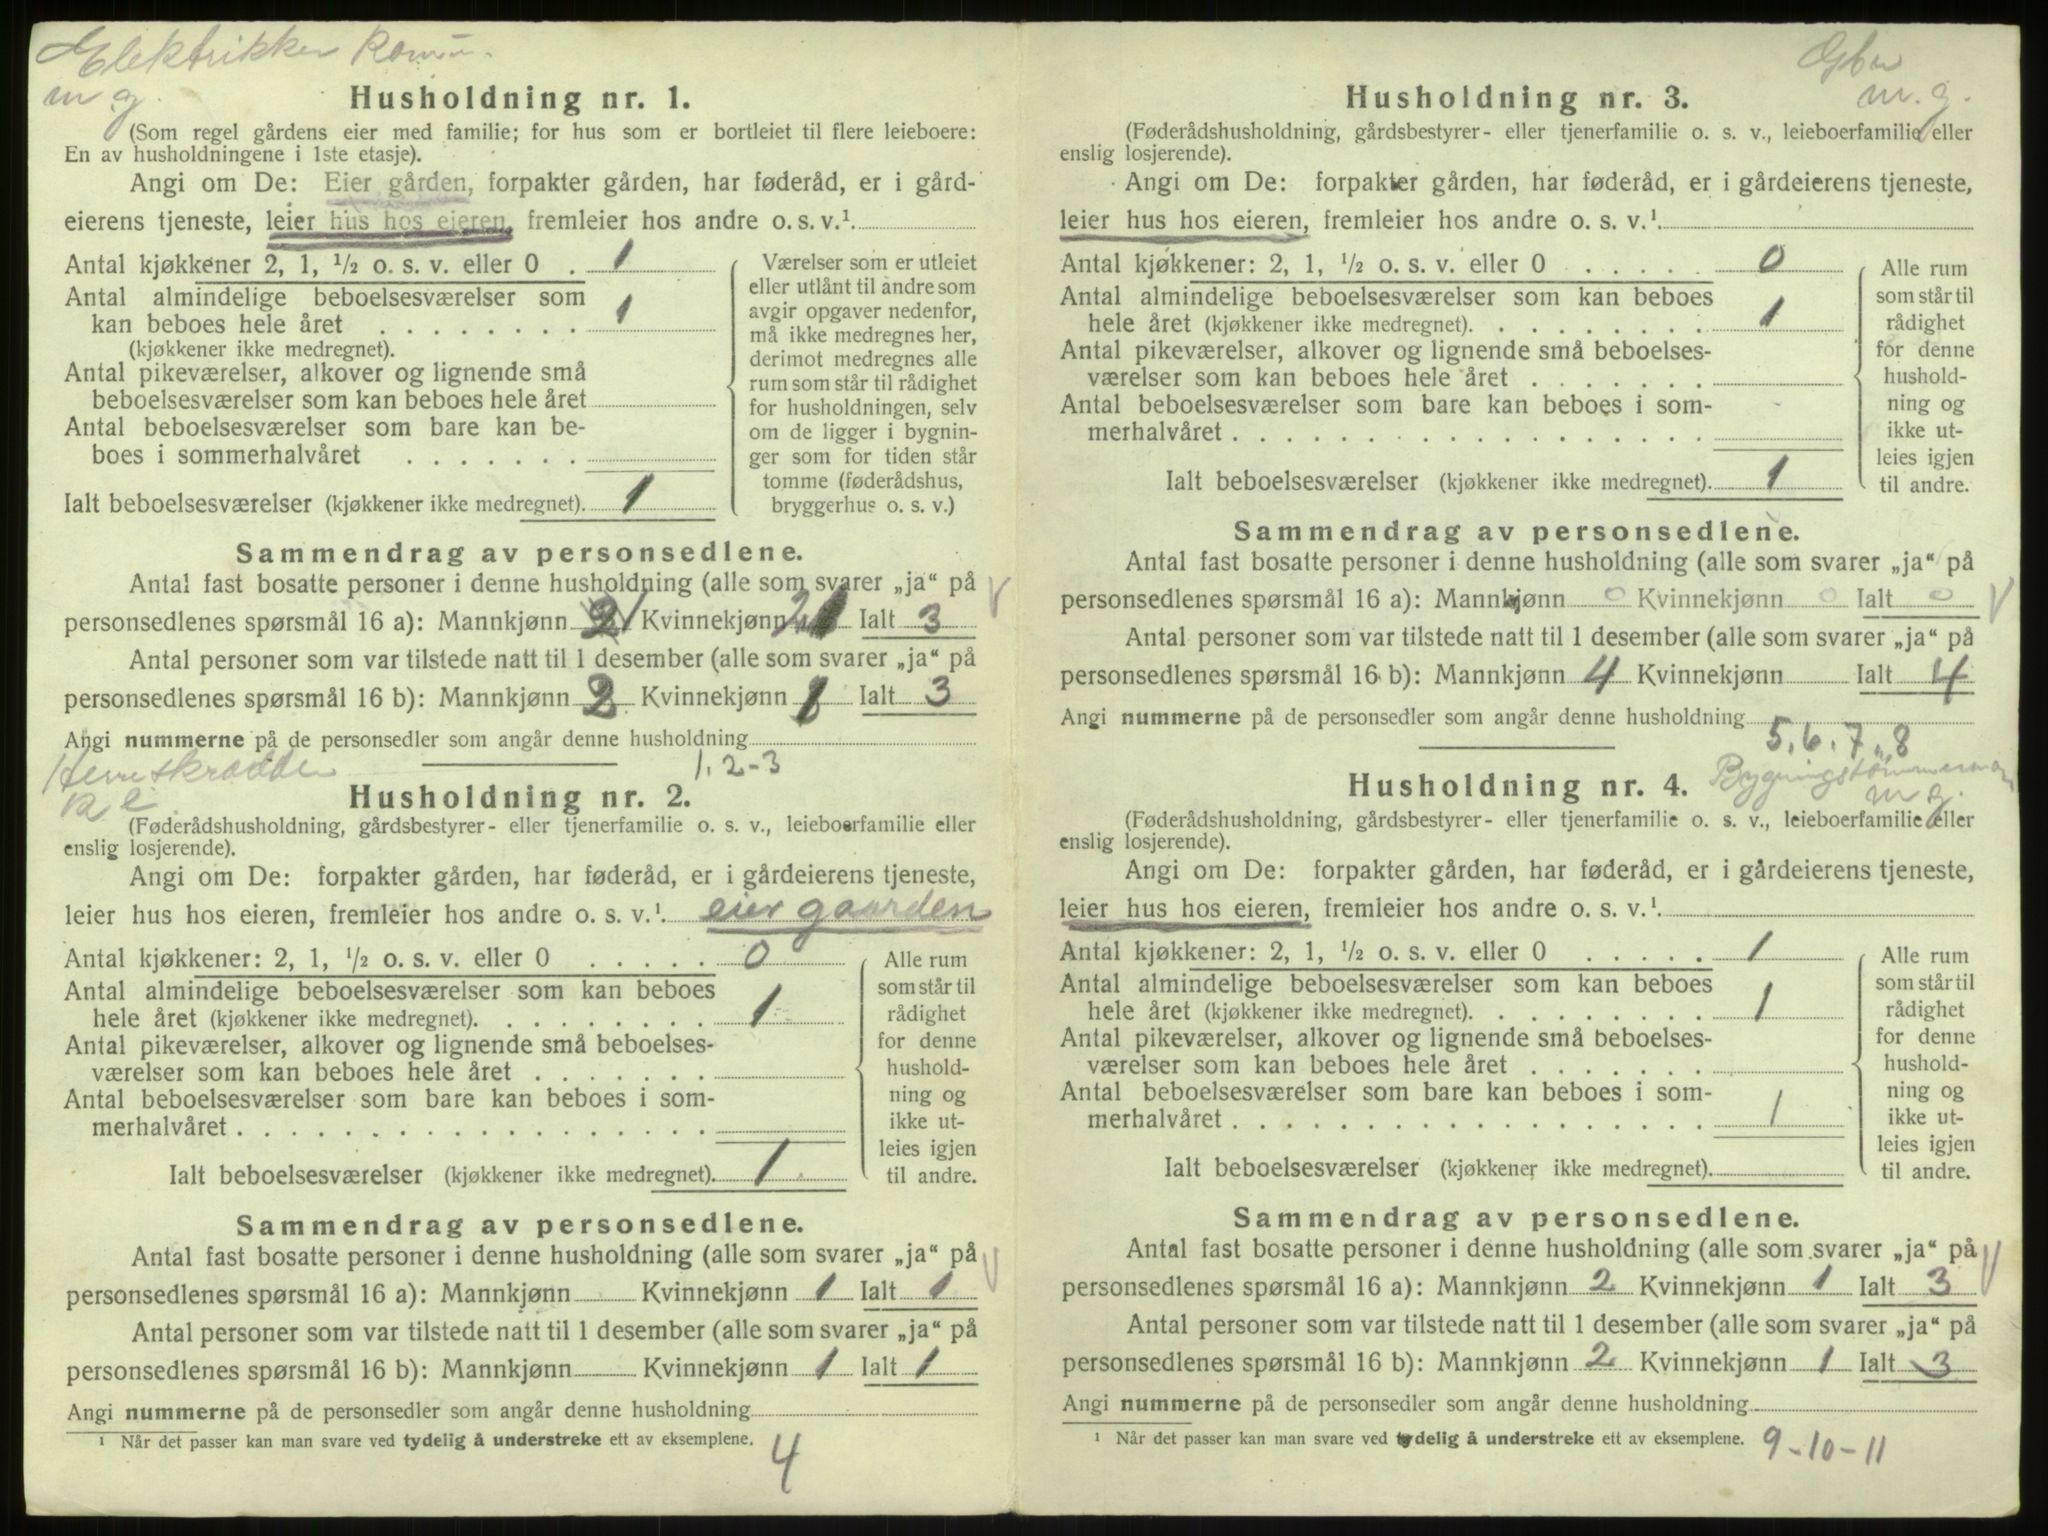 Elektrikker
m g.
Husholdning nr. 1.
(Som regel gårdens eier med familie; for hus som er bortleiet til flere leieboere:
En av husholdningene i 1ste etasje).
Angi om De: Eier gården, forpakter gården, har føderåd, er i gård-
eierens tjeneste, leier hus hos eieren, fremleier hos andre o. s. v.¹
Antal kjøkkener 2, 1, ½ o. s. v. eller 0 . 1
Antal almindelige beboelsesværelser som
kan beboes hele året . . . . . . . . 1
(kjøkkener ikke medregnet).
Antal pikeværelser, alkover og lignende små
beboelsesværelser som kan beboes hele året
Antal beboelsesværelser som bare kan be-
boes i sommerhalvåret . . . . . . .
Ialt beboelsesværelser (kjøkkener ikke medregnet). 1
Værelser som er utleiet
eller utlånt til andre som
avgir opgaver nedenfor,
må ikke medregnes her,
derimot medregnes alle
rum som står til rådighet
for husholdningen, selv
om de ligger i bygnin-
ger som for tiden står
tomme (føderådshus,
bryggerhus o. s. v.)
Sammendrag av personsedlene.
Antal fast bosatte personer i denne husholdning (alle som svarer „ja“ på
personsedlenes spørsmål 16 a): Mannkjønn 2 1 Kvinnekjønn 2 1 Ialt 3
Antal personer som var tilstede natt til 1 desember (alle som svarer „ja“ på
personsedlenes spørsmål 16 b): Mannkjønn 2 Kvinnekjønn 1 Ialt 3
Angi nummerne på de personsedler som angår denne husholdning
1. 2-3
Husholdning nr. 2.
(Føderådshusholdning, gårdsbestyrer- eller tjenerfamilie o. s. v., leieboerfamilie eller
enslig losjerende).
Angi om De: forpakter gården, har føderåd, er i gårdeierens tjeneste,
leier hus hos eieren, fremleier hos andre o. s. v.¹ eier gaarden
Antal kjøkkener: 2, 1, ½ o. s. v. eller 0 . . . . . 0
Antal almindelige beboelsesværelser som kan beboes
hele året (kjøkkener ikke medregnet). . . . . . . . . 1
Antal pikeværelser, alkover og lignende små beboelses-
værelser som kan beboes hele året . . . . . . .
Antal beboelsesværelser som bare kan beboes i som-
merhalvåret . . . . . . . . . . . . . . . . . .
Ialt beboelsesværelser (kjøkkener ikke medregnet). 1
Alle rum
som står til
rådighet
for denne
hushold-
ning og
ikke ut-
leies igjen
til andre.
Sammendrag av personsedlene.
Antal fast bosatte personer i denne husholdning (alle som svarer „ja“ på
personsedlenes spørsmål 16 a): Mannkjønn Kvinnekjønn 1 Ialt 1
Antal personer som var tilstede natt til 1 desember (alle som svarer „ja“ på
personsedlenes spørsmål 16 b): Mannkjønn Kvinnekjønn 1 Ialt 1
Angi nummerne på de personsedler som angår denne husholdning
¹ Når det passer kan man svare ved tydelig å understreke ett av eksemplene.
4
m. g.
Husholdning nr. 3.
(Føderådshusholdning, gårdsbestyrer- eller tjenerfamilie o. s. v., leieboerfamilie eller
enslig losjerende).
Angi om De: forpakter gården, har føderåd, er i gårdeierens tjeneste,
leier hus hos eieren, fremleier hos andre o. s. v.¹
Antal kjøkkener: 2, 1, ½ o. s. v. eller 0 . . . . . 0
Antal almindelige beboelsesværelser som kan beboes
hele året (kjøkkener ikke medregnet). . . . . . . . . 1
Antal pikeværelser, alkover og lignende små beboelses-
værelser som kan beboes hele året . . . . . . .
Antal beboelsesværelser som bare kan beboes i som-
merhalvåret . . . . . . . . . . . . . . . . . .
Ialt beboelsesværelser (kjøkkener ikke medregnet). 1
Alle rum
som står til
rådighet
for denne
hushold-
ning og
ikke ut-
leies igjen
til andre.
Sammendrag av personsedlene.
Antal fast bosatte personer i denne husholdning (alle som svarer „ja“ på
personsedlenes spørsmål 16 a): Mannkjønn 0 Kvinnekjønn 0 Ialt 0
Antal personer som var tilstede natt til 1 desember (alle som svarer „ja“ på
personsedlenes spørsmål 16 b): Mannkjønn 4 Kvinnekjønn Ialt 4
Angi nummerne på de personsedler som angår denne husholdning
5. 6. 7. 8
Bygningstømmerman
m g.
Husholdning nr. 4.
(Føderådshusholdning, gårdsbestyrer- eller tjenerfamilie o. s. v., leieboerfamilie eller
enslig losjerende).
Angi om De: forpakter gården, har føderåd, er i gårdeierens tjeneste,
leier hus hos eieren, fremleier hos andre o. s. v.¹
Antal kjøkkener: 2, 1, ½ o. s. v. eller 0 . . . . . 1
Antal almindelige beboelsesværelser som kan beboes
hele året (kjøkkener ikke medregnet). . . . . . . . . 1
Antal pikeværelser, alkover og lignende små beboelses-
værelser som kan beboes hele året . . . . . . .
Antal beboelsesværelser som bare kan beboes i som-
merhalvåret . . . . . . . . . . . . . . . . . . 1
Ialt beboelsesværelser (kjøkkener ikke medregnet).
Alle rum
som står til
rådighet
for denne
hushold-
ning og
ikke ut-
leies igjen
til andre.
Sammendrag av personsedlene.
Antal fast bosatte personer i denne husholdning (alle som svarer „ja“ på
personsedlenes spørsmål 16 a): Mannkjønn 2 Kvinnekjønn 1 Ialt 3
Antal personer som var tilstede natt til 1 desember (alle som svarer „ja“ på
personsedlenes spørsmål 16 b): Mannkjønn 2 Kvinnekjønn 1 Ialt 3
Angi nummerne på de personsedler som angår denne husholdning
¹ Når det passer kan man svare ved tydelig å understreke ett av eksemplene. 9-10-11